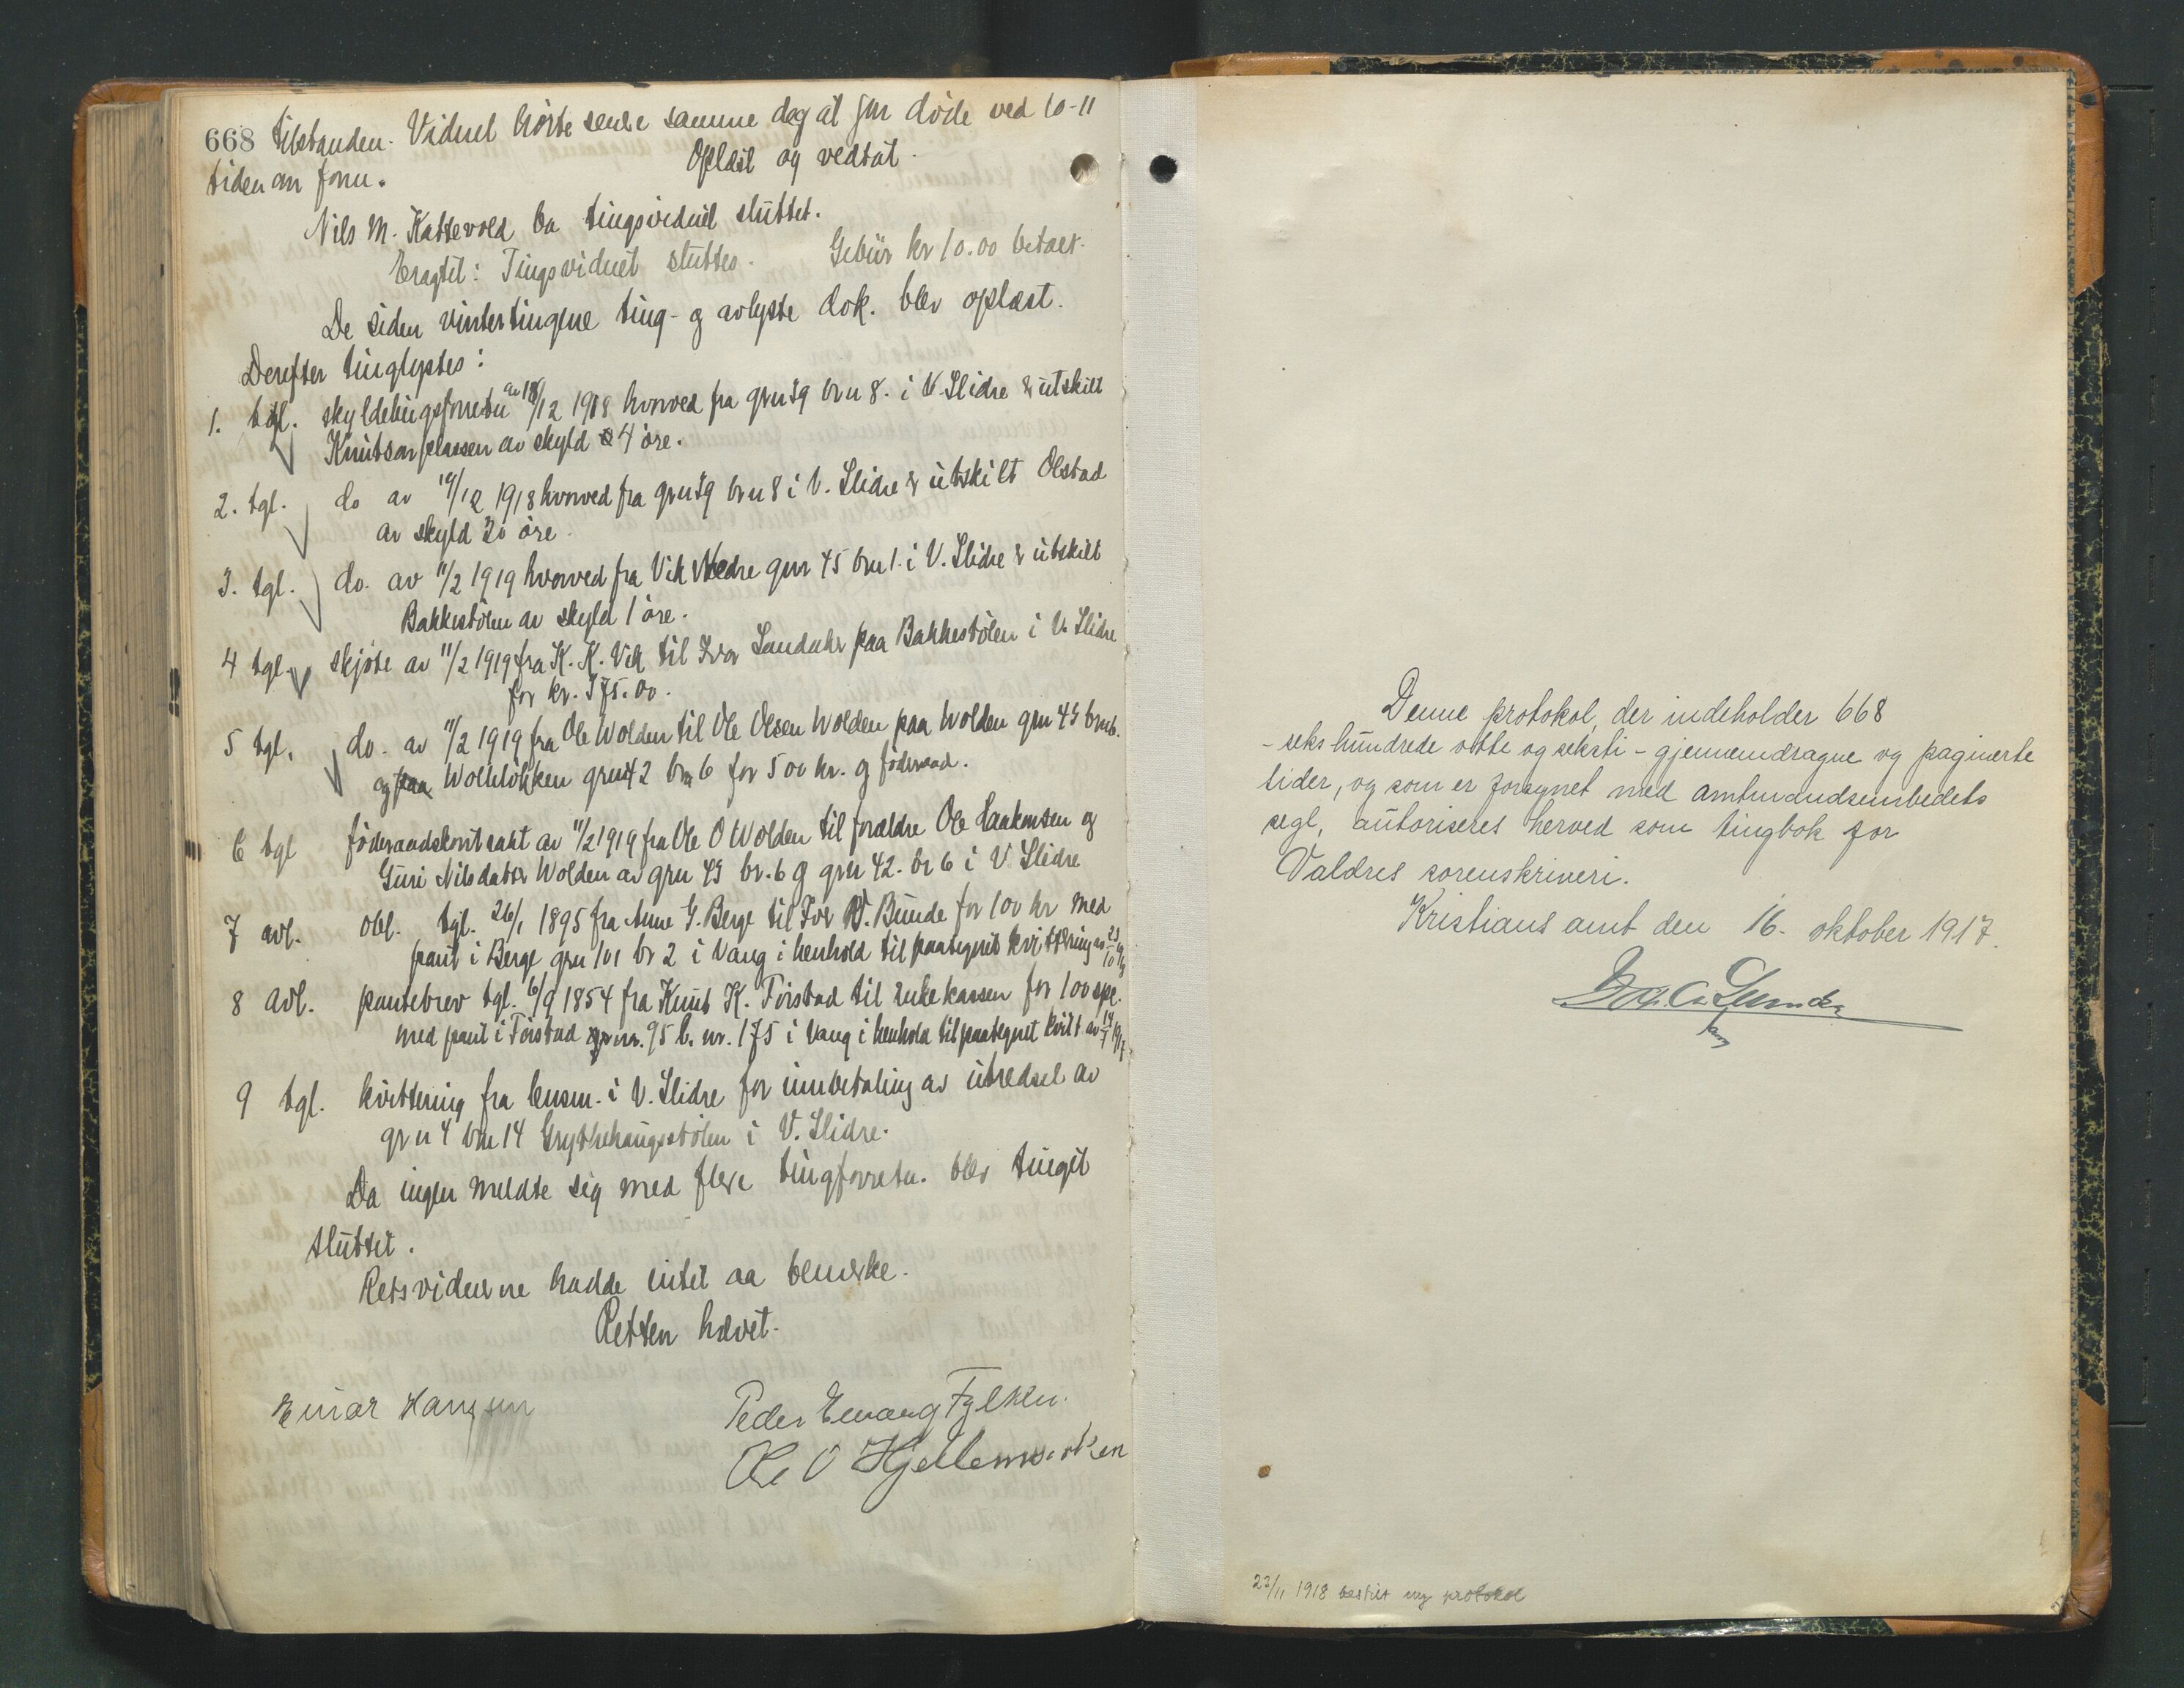 668 tilstanden. Vidnet hørte senere samme dag at hun døde ved 10-11
tiden om form.
Oplæst og vedtat.
Nils M. Kattevold ba tingsvidnet sluttet.
Eragtet: Tingsvidnet sluttes. Gebür kr 10.00 betalt.
De siden vintertingene ting- og avlyste dok. blev oplæst.
Derefter tinglystes:
1. tgl. skyldelingsforretn av 18/12 1918 hvorved fra grn 39 brn 8. i V. Slidre er utskilt
Knutsonplassen av skyld 4 øre.
2. tgl. do av 19/12 1918 hvorved fra grn 39 brn 8 i V. Slidre er utskilt Olstad
av skyld 30 øre.
3. tgl. do. av 11/2 1919 hvorved fra Vik Nedre grn 45 brn 1. i V. Slidre er utskilt
Bakkestølen av skyld 1 øre.
4 tgl. skjøte av 11/2 1919 fra K. K. Vik til Ivar Landaker paa Bakkestølen i V. Slidre
for kr. 375.00.
5 tgl. do. av 11/2 1919 fra Ole Wolden til Ole Olsen Wolden paa Wolden grn 43 brn 6.
og paa Woldløkken grn 42 brn 6 for 500 kr. og føderaad.
6 tgl føderaadskontrakt av 11/2 1919 fra Ole O Wolden til forældre Ole Haakensen og
Guri Nilsdatter Wolden av grn 43 br. 6 og grn 42. br 6 i V. Slidre
7 avl. obl. tgl. 26/1 1895 fra Anne G. Berge til Ivar V. Bunde for 100 kr med
pant i Berge grn 101 br 2 i Vang i henhold til paategnet kvittering av 23/10
8 Avl. pantebrev tgl. 6/9 1854 fra Knut K. Tørstad til Enkekassen for 100 spe.
med pant i Tørstad nr. 95 l. nr. 175 i Vang i henhold til paategnet kvitt av 14/7 1917
9 tgl. kvittering fra lensm. i V. Slidre for innbetaling av utredsel av
grn 4 brn 14 Gryttehaugstølen i V. Slidre.
Da ingen meldte sig med flere tingforretn. blev tinget
sluttet.
Retsvidnerne hadde intet aa bemerke.
Retten hævet.
Einar Hansen
Peder Ewang Fylken.
Ole O Hjellemoeiken
Denne protokol, der indeholder 668
- seks hundrede otte og seksti - gjennemdragne og paginerte
sider, og som er forsynet med amtmandsembedets
segl, autoriseres herved som tingbok for
Valdres sorenskriveri.
Kristians amt den 16. oktober 1917.
23/11 1918 bestilt ny protokol